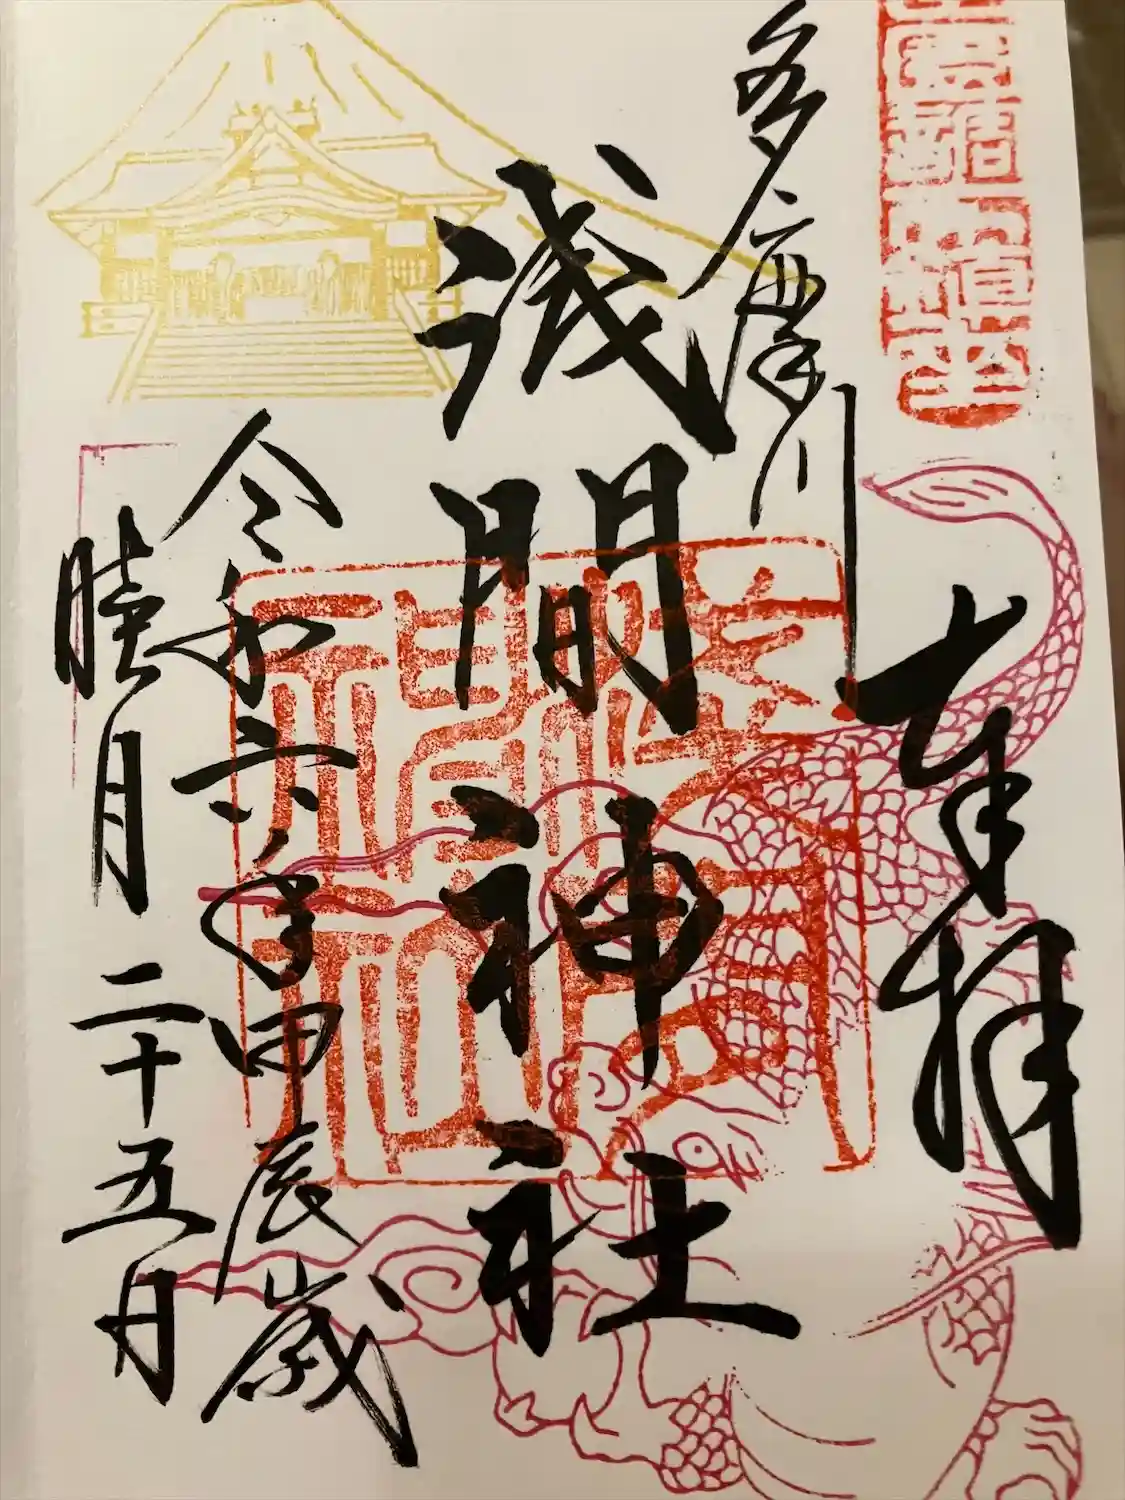 奉拝
多摩川
浅間神社
令和六年甲辰歳
睦月二十五日